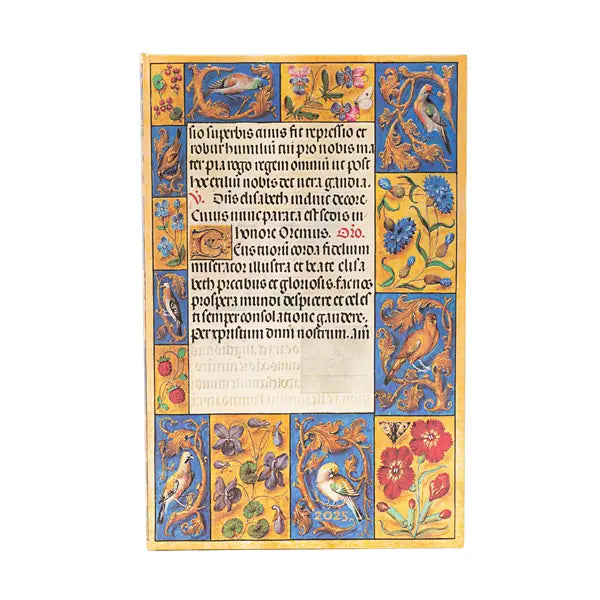 sio superbis cuius fit repressio et
robur humiliū cui pro nobis ma
ter pia rogo regem omniū ut post
hoc exiliū nobis det vera gaudia.
V. Dn̄s elisabeth induit decore.
Cuius nunc parata est sedis in
honore Oremus. Oro.
Deus tuorū corda fidelium
miserator illustra et beate elisa
beth precibus et gloriosis. fac nos
prospera mundi despicere et celes
ti semper consolatione gaudere.
Per xpristum dn̄m nostrum. Am̄
2025